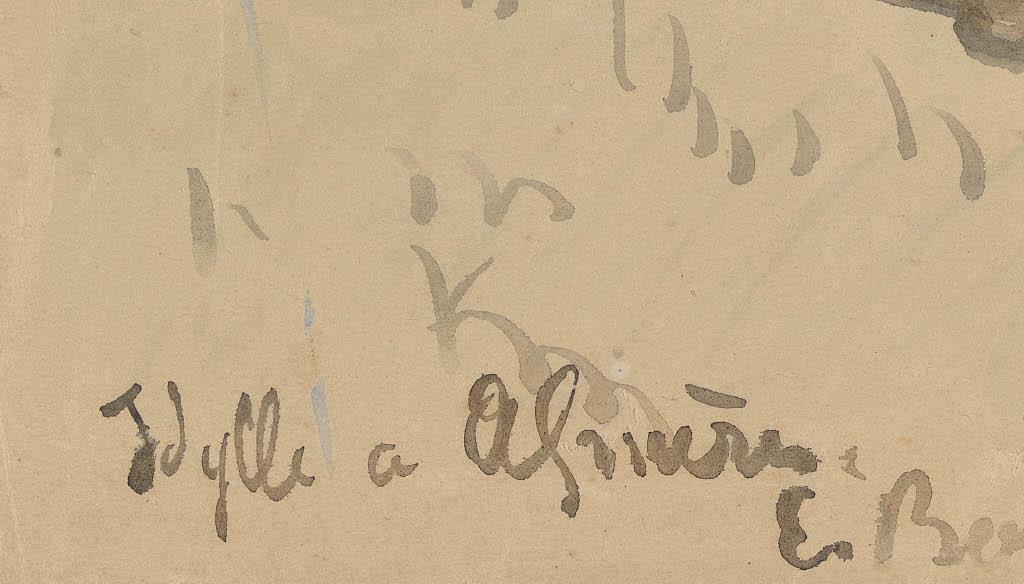 Idylle a Asnières.
E. Ber